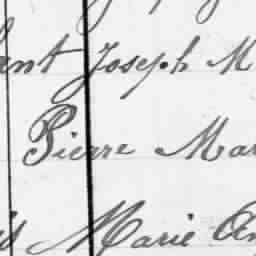 ant Joseph M
Pierre Mar
is Marie An